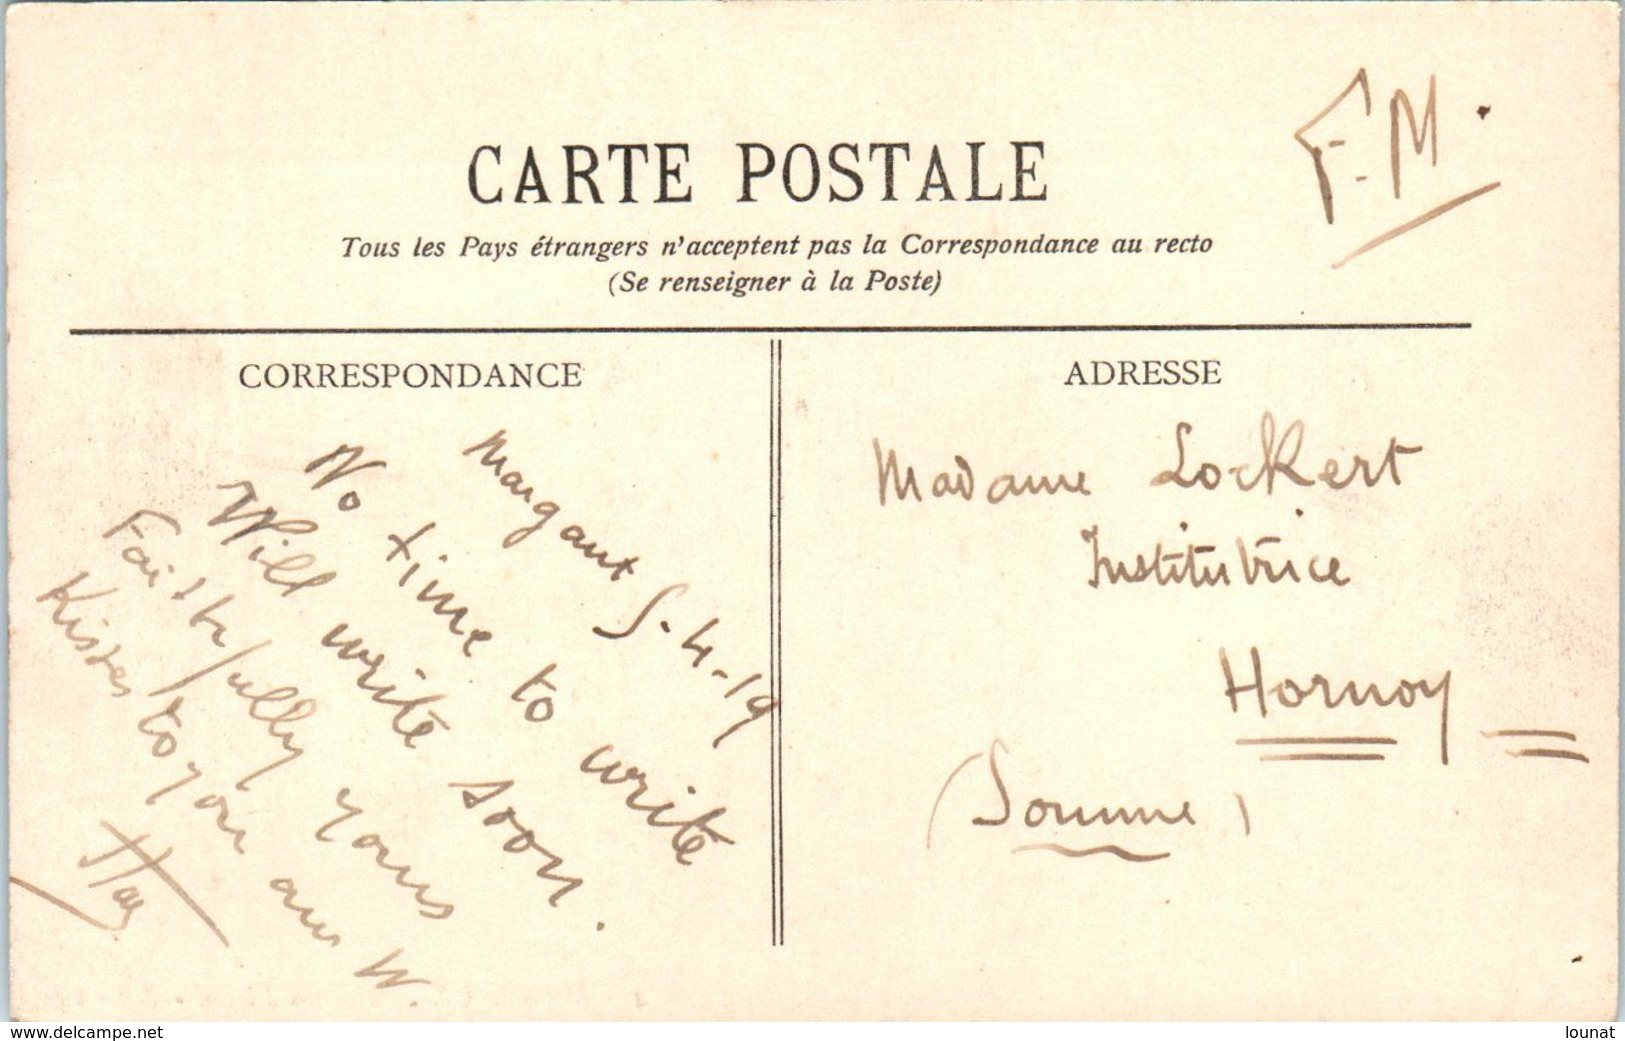 F.M.
CARTE POSTALE
Tous les Pays étrangers n'acceptent pas la Correspondance au recto
(Se renseigner à la Poste)
CORRESPONDANCE
Margaut 5-4-19
No time to write
Will write soon.
Faithfully yours
Kisses to you and W.
ADRESSE
Madame Lockert
Institutrice
Hornoy
(Somme)
www.delcampe.net
lounat